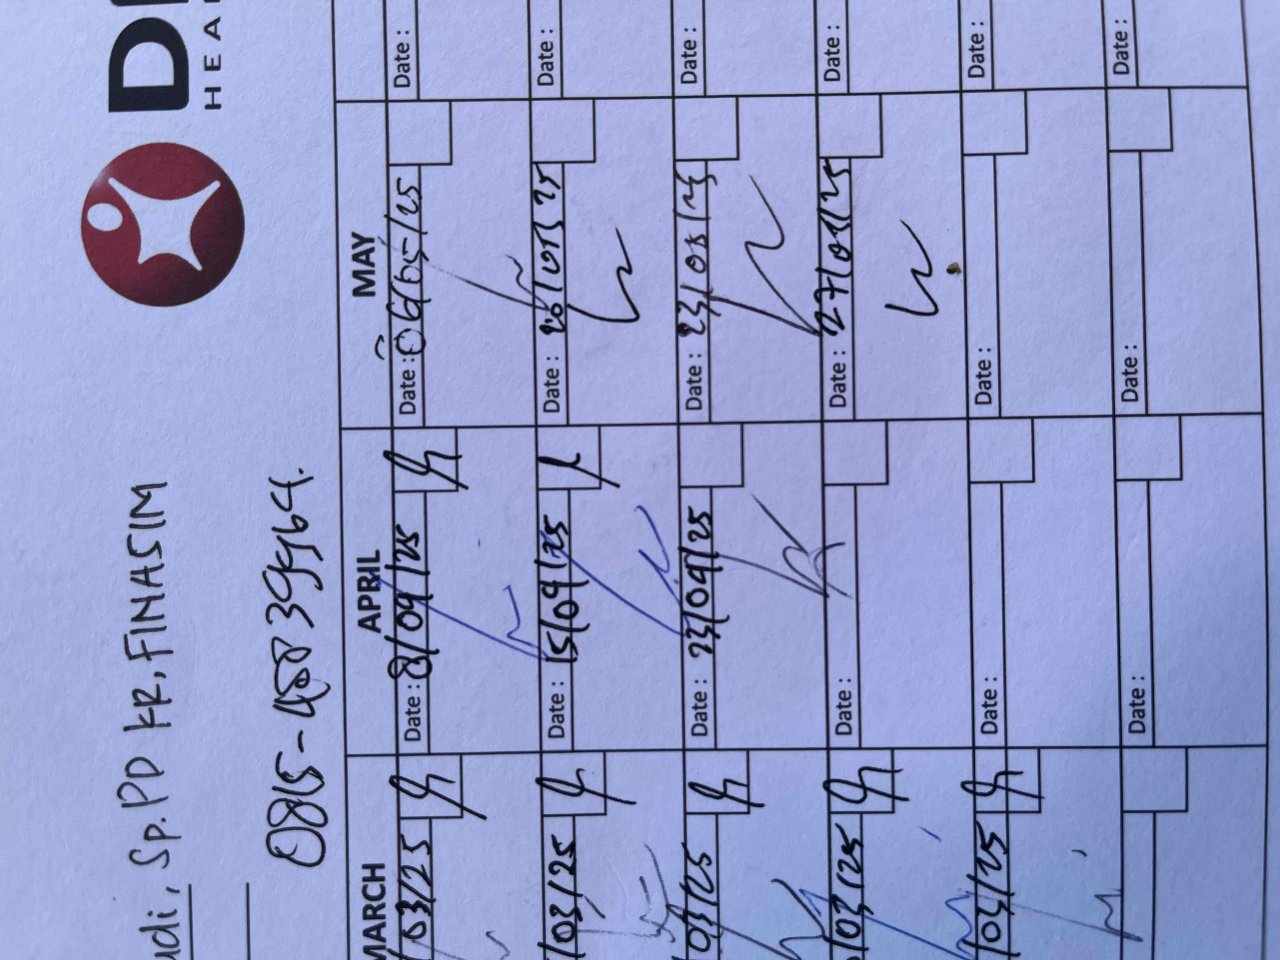 HEA
udi, Sp.PD KR, FINASIM
MARCH APRIL MAY
03/25 Date: 8/04/25 Date: 06/05/25 Date:
/03/25 Date: 15/04/25 Date: 20/05/25 Date:
/03/25 Date: 23/04/25 Date: 23/05/25 Date:
/03/25 Date: Date: 27/05/25 Date:
/03/25 Date: Date: Date:
Date: Date: Date: